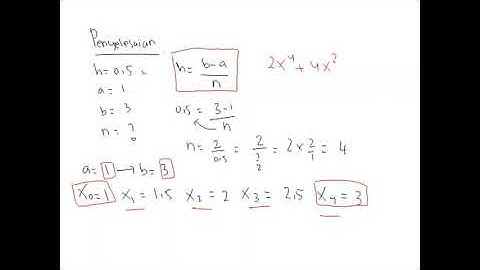 Penyelesaian
h = 0,5
a = 1
b = 3
n = ?
h = b-a / n
2x⁴ + 4x²
0,5 = 3-1 / n
n = 2 / 0,5 = 2 / ½ = 2 x 2/1 = 4
a = 1 → b = 3
X₀ = 1 X₁ = 1,5 X₂ = 2 X₃ = 2,5 X₄ = 3